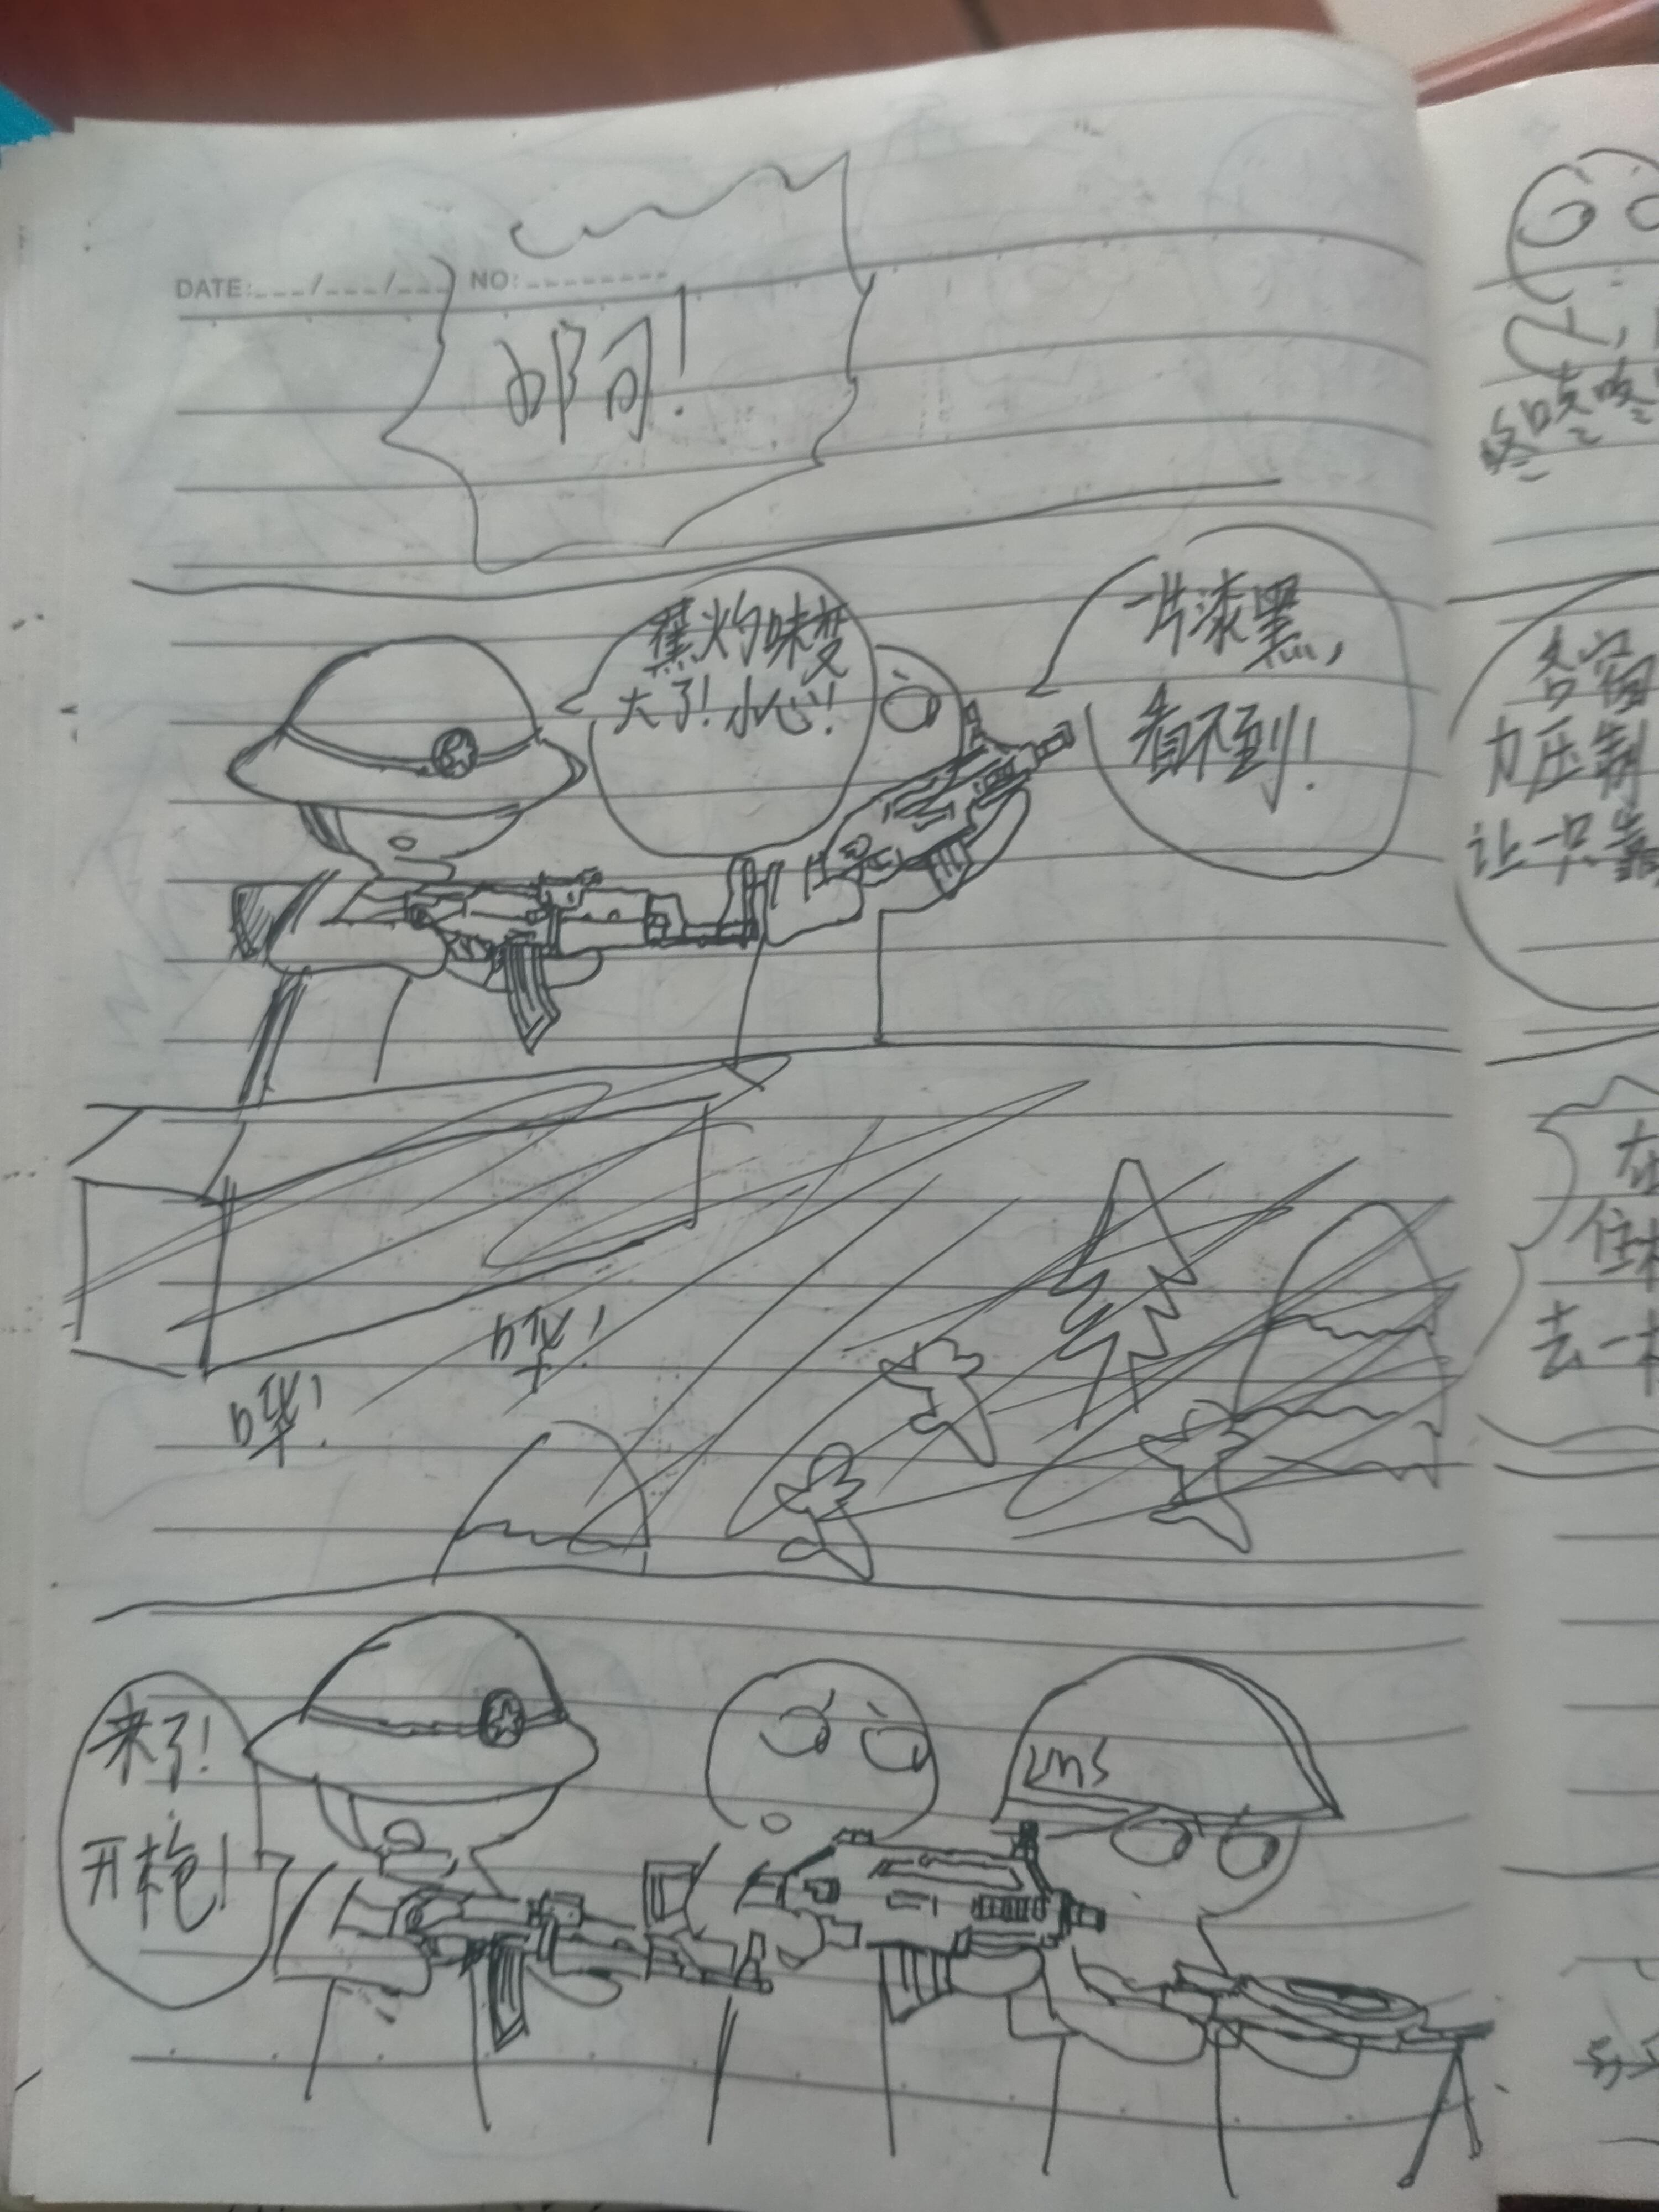 DATE:___/___/___ NO:
焦灼味变
大了！小心！
一片漆黑，
看不到！
哗！
哗！
来了！
开枪！
LMS
咚咚咚
各宿
力压制
让一只靠
在
住
去一